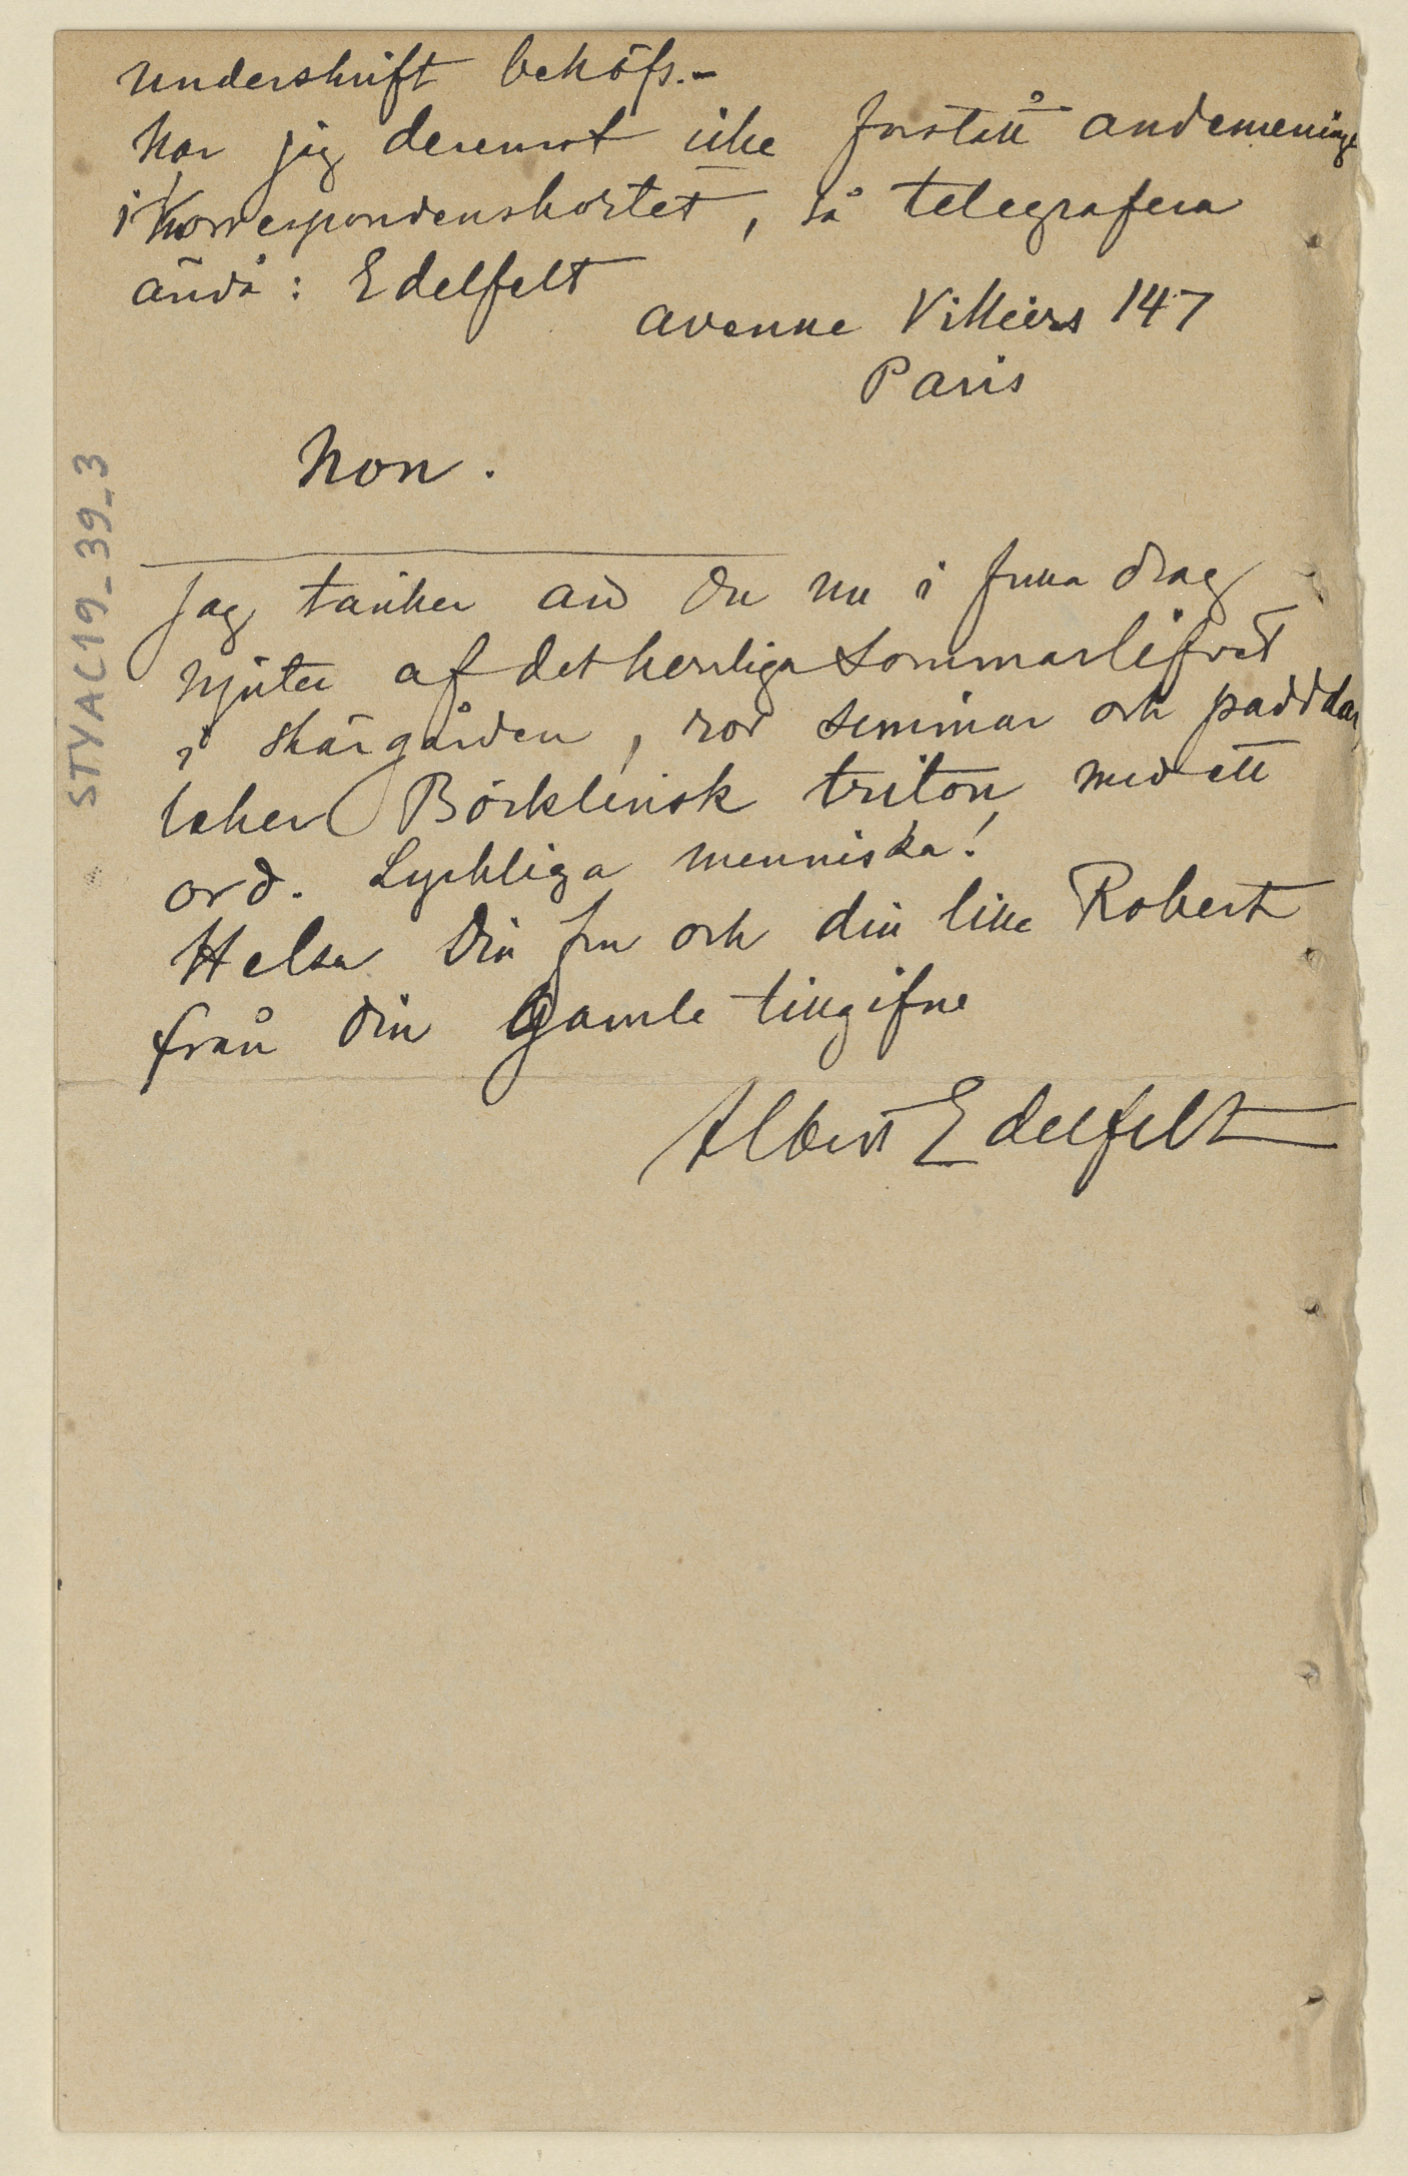 underskrift behöfs.–
har jag deremot icke förstått andemeninge
i korrespondenskortet, så telegrafera
ändå: Edelfelt
avenue Villiers 147
Paris
Non.
Jag tänker att Du nu i fulla drag
njuter af det herrliga sommarlifvet
i skärgården, ror simmar och paddlar,
leker Böcklinsk triton med ett
ord. Lyckliga menniska!
Helsa Din fru och din lille Robert
från din gamle tillgifne
Albert Edelfelt
STYAC19_39_3